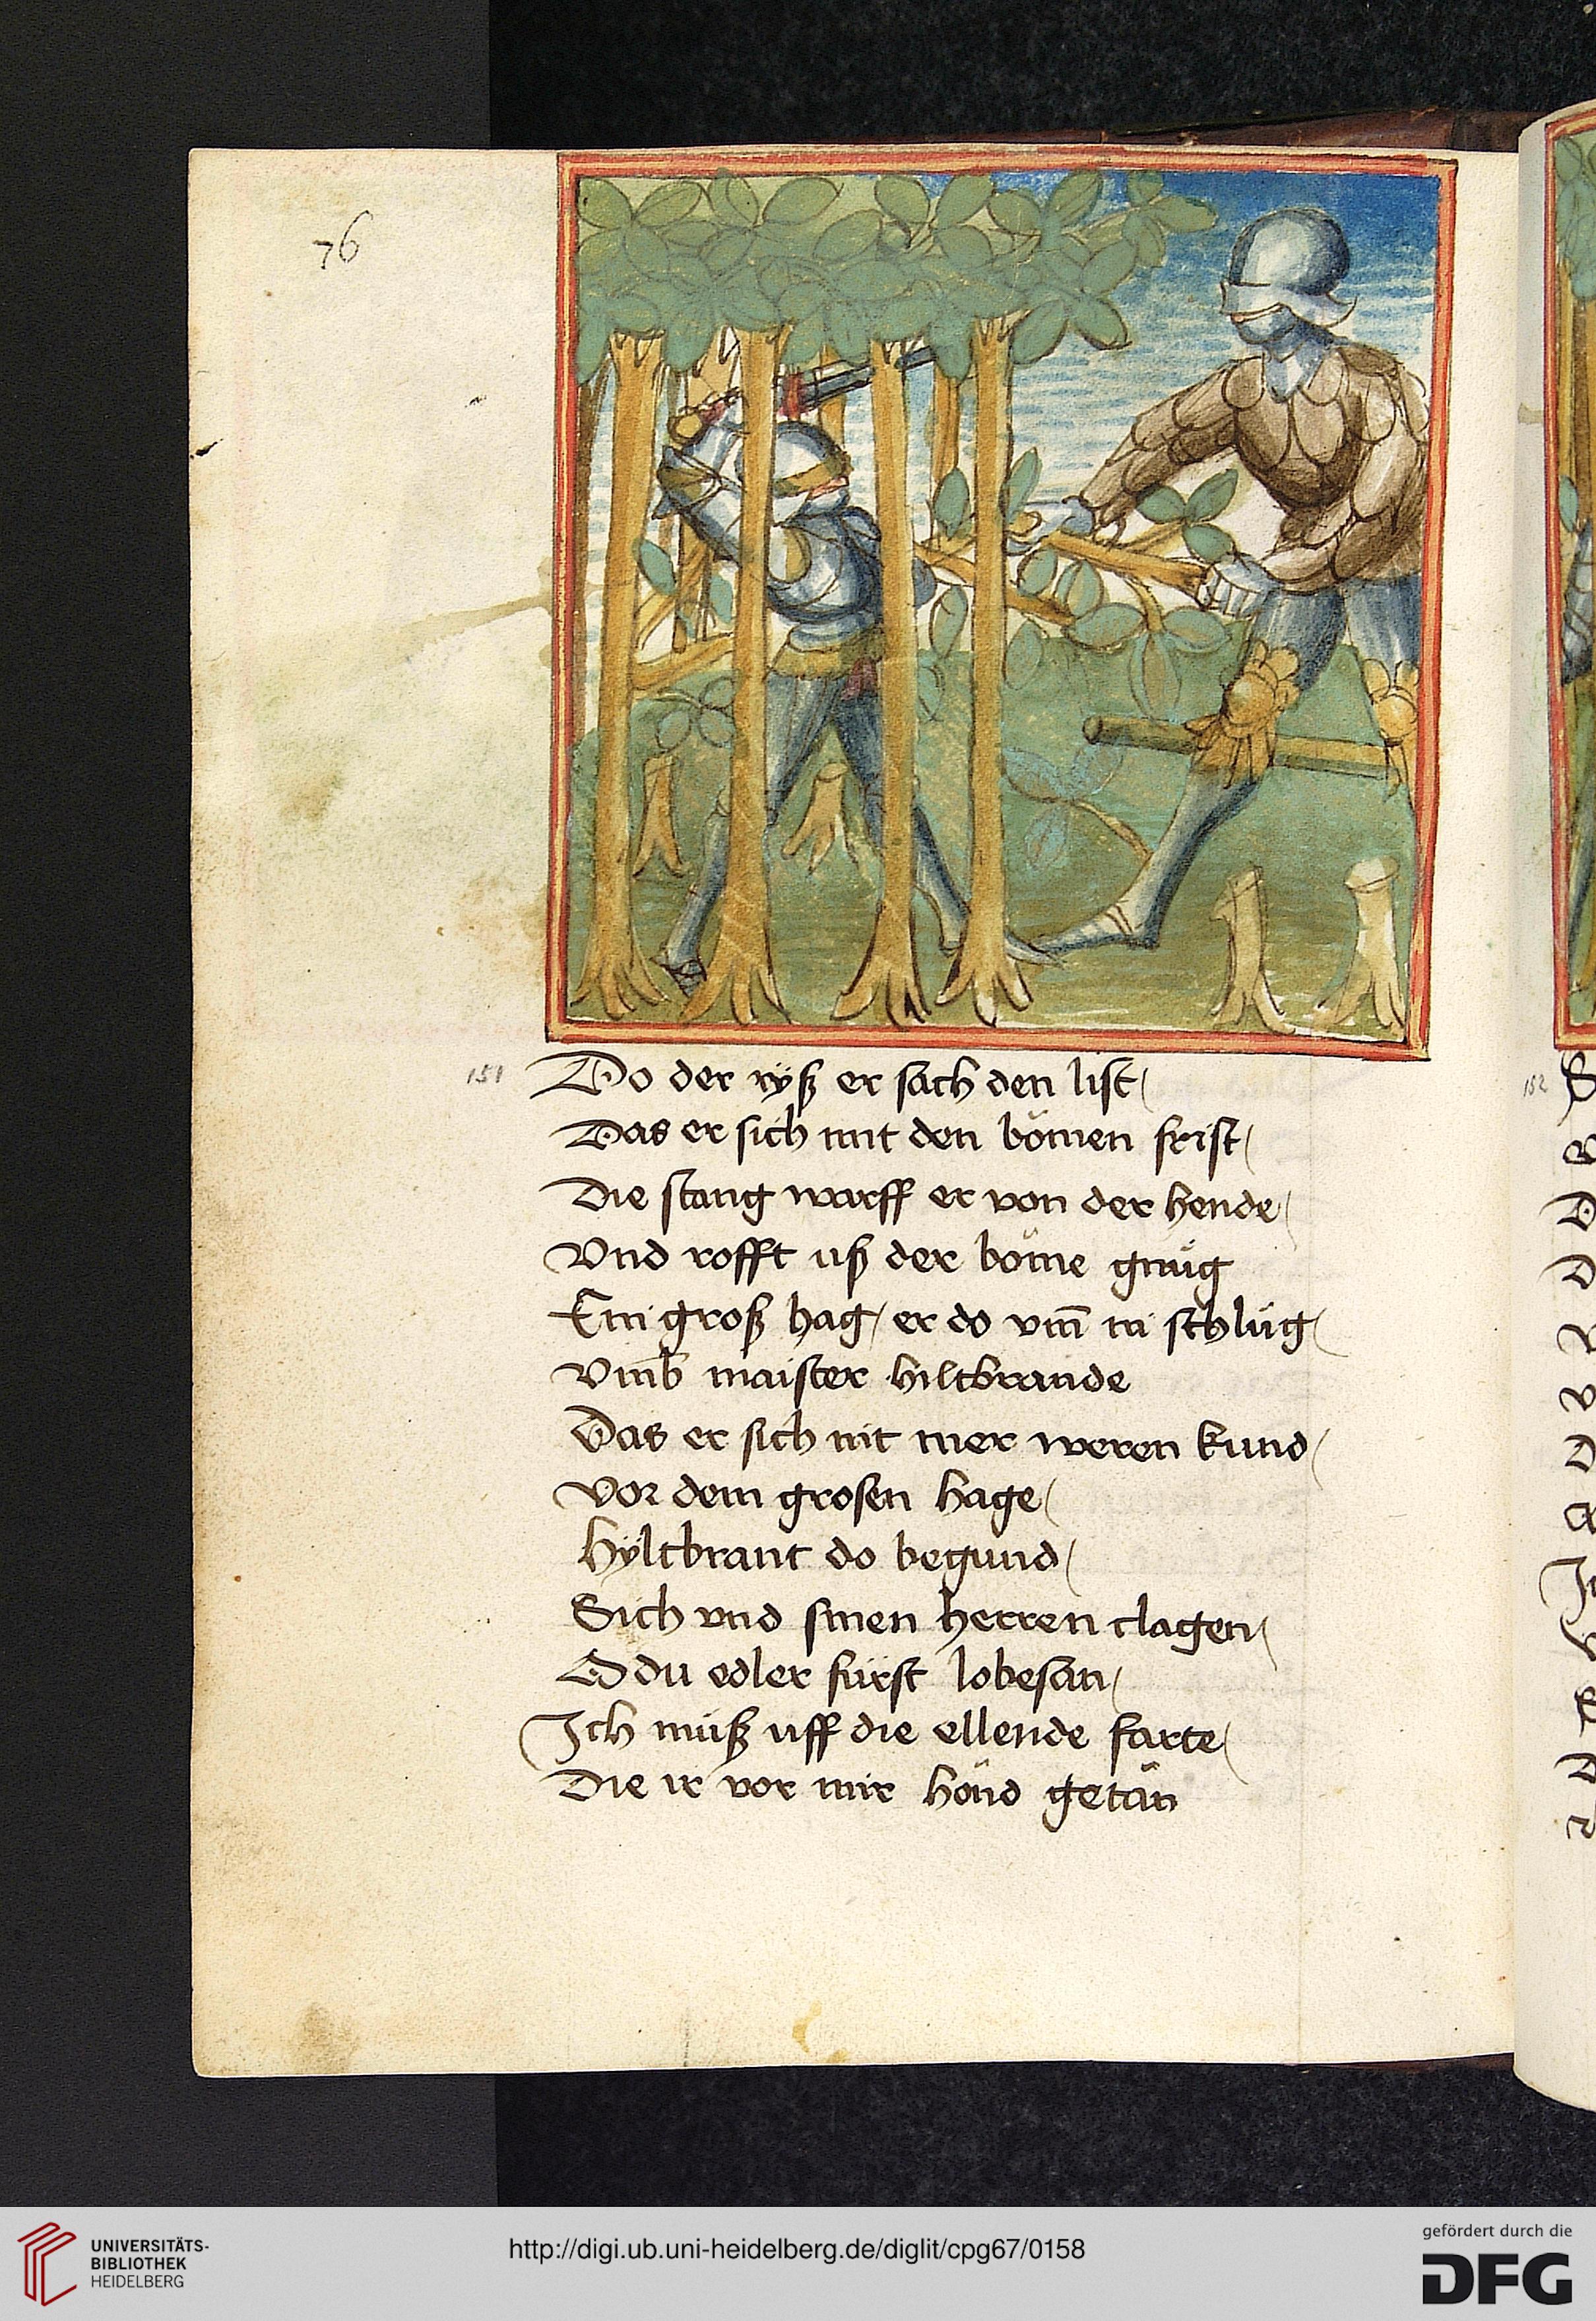 76
151
Do der ryß er sach den list/
Das er sich mit den bömen frist/
Die stang warff er von der hende/
Vnd rofft uß der böme gnüg
Ein groß hag/ er do vm̄ in schlüg/
Vmb maister hiltbrande
Das er sich nit mer weren kund/
Vor dem grosen hage/
Hÿltbrant do begund/
Sich vnd sinen herren clagen/
O du edler fürst lobesan/
Ich müß uff die ellende farte/
Die ir vor mir hönd getän
152
UNIVERSITÄTS-
BIBLIOTHEK
HEIDELBERG
http://digi.ub.uni-heidelberg.de/diglit/cpg67/0158
gefördert durch die
DFG